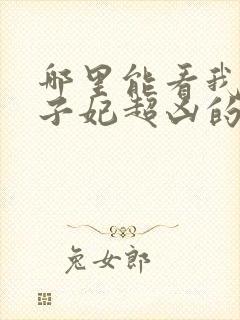 哪里能看我
子妃超凶的
兔女郎